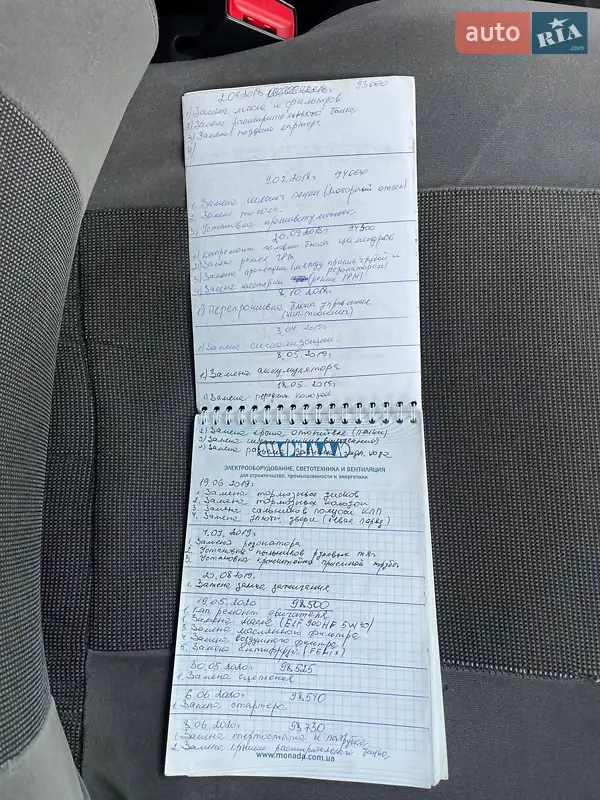 auto RIA .com
2.04.2018г 93000
1) Замена масла и фильтров
2) Замена расширительного бачка
3) Замена поддона картера
4)
9.07.2018г. 94000
1. Замена шланга печки (моторный отсек)
2. Замена
3. Установка противотуманок.
20.09.2018г 94300
1) капремонт головки блока цилиндров
2) Замена ремня ГРМ
3) Замена прокладки (между приемн. трубой и резонатором)
4) Замена шестерни (ремня ГРМ)
8.10.2018г.
1) Перепрошивка блока управления
(чип-тюнинг)
3.04.2019г
1) Замена сигнализации.
8.05.2019г
1) Замена аккумулятора
18.05.2019г
1) Замена передних колодок
2) Замена крана отопителя (печки)
3) Замена
4) Замена задн. хода
ЭЛЕКТРООБОРУДОВАНИЕ, СВЕТОТЕХНИКА И ВЕНТИЛЯЦИЯ
для строительства, промышленности и энергетики
19.06.2019г
1. Замена тормозных дисков
2. Замена тормозных колодок
3. Замена сальников полуоси КПП
4. Замена двери (левая перед)
4.07.2019г.
1. Замена резонатора
2. Установка пыльников рулевых тяг
3. Установка кронштейна приемной трубы
20.08.2019г.
1. Замена замка зажигания
19.05.2020 98500
1. Кап. ремонт двигателя
2. Замена масла (ELF 900HF 5W40)
3. Замена масляного фильтра
4. Замена воздушного фильтра
5. Замена антифриза (FELIX)
30.05.2020г 98525
1. Замена сцепления
6.06.2020г 98540
1. Замена стартера
8.06.2020г 98730
1. Замена термостата и патрубка
2. Замена крышки расширительного бачка
www.monada.com.ua